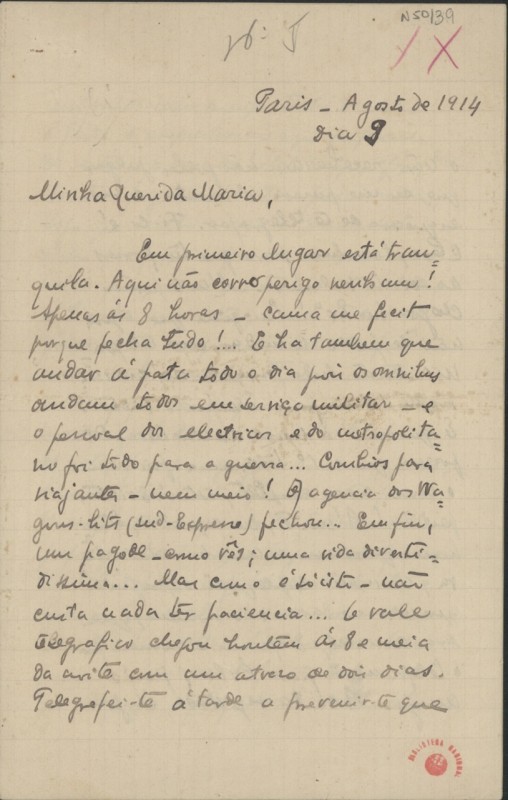 N50/39
Paris - Agosto de 1914
Dia 9
Minha Querida Maria,
Em primeiro lugar está tran=
quila. Aqui não corro perigo nenhum!
Apenas ás 8 horas - cama me fecit
porque fecha tudo!... E ha tambem que
andar á pata todo o dia pois os omnibus
andam todos em serviço militar - e
o pessoal dos electricos e do metropolita=
no foi todo para a guerra... Combios para
viajantes - nem meio! A agencia dos Wa=
gons-lits (sud-Express) fechou... Emfim,
um pagode - como vês; uma vida diverti=
dissima... Mas como é só isto - não
custa nada ter paciencia... O vale
telegrafico chegou hontem ás 8 e meia
da noite com um atrazo de dois dias.
Telegrafei-te á tarde a prevenir-te que
BIBLIOTECA NACIONAL